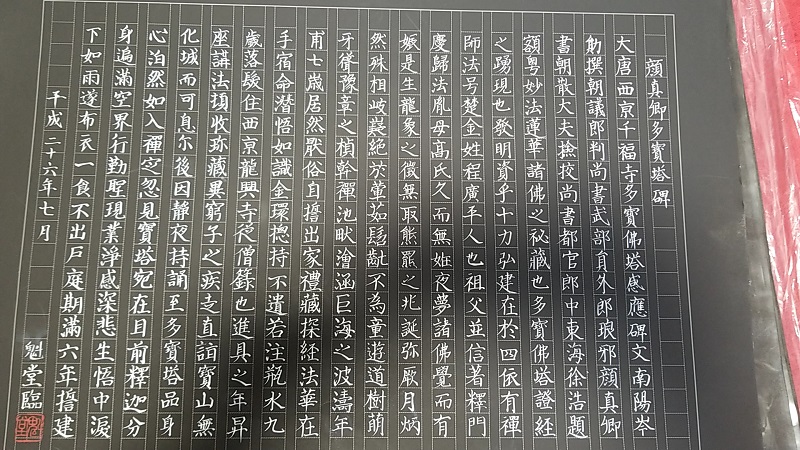 顔真卿多寶塔碑
大唐西京千福寺多寶佛塔感應碑文南陽岑
勛撰朝議郎判尚書武部員外郎琅邪顔真卿
書朝散大夫撿挍尚書都官郎中東海徐浩題
額粤妙法蓮華諸佛之秘藏也多寶佛塔證經
之踴現也發明資乎十力弘建在於四依有禪
師法号楚金姓程廣平人也祖父並信著釋門
慶歸法胤母高氏久而無姙夜夢諸佛覺而有
娠是生龍象之徵無取熊羆之兆誕弥厥月炳
然殊相岐嶷絕於葷茹髫齔不為童遊道樹萌
牙聳豫章之楨幹禪池畎澮涵巨海之波濤年
甫七歲居然猒俗自誓出家禮藏探經法華在
手宿命潜悟如識金環揔持不遺若注瓶水九
歲落髮住西京龍興寺從僧籙也進具之年昇
座講法頓收珎藏異窮子之疾走直詣寶山無
化城而可息尓後因靜夜持誦至多寶塔品身
心泊然如入禪定忽見寶塔宛在目前釋迦分
身遍滿空界行勤聖現業淨感深悲生悟中淚
下如雨遂布衣一食不出戶庭期滿六年誓建
平成二十六年七月
魁堂臨